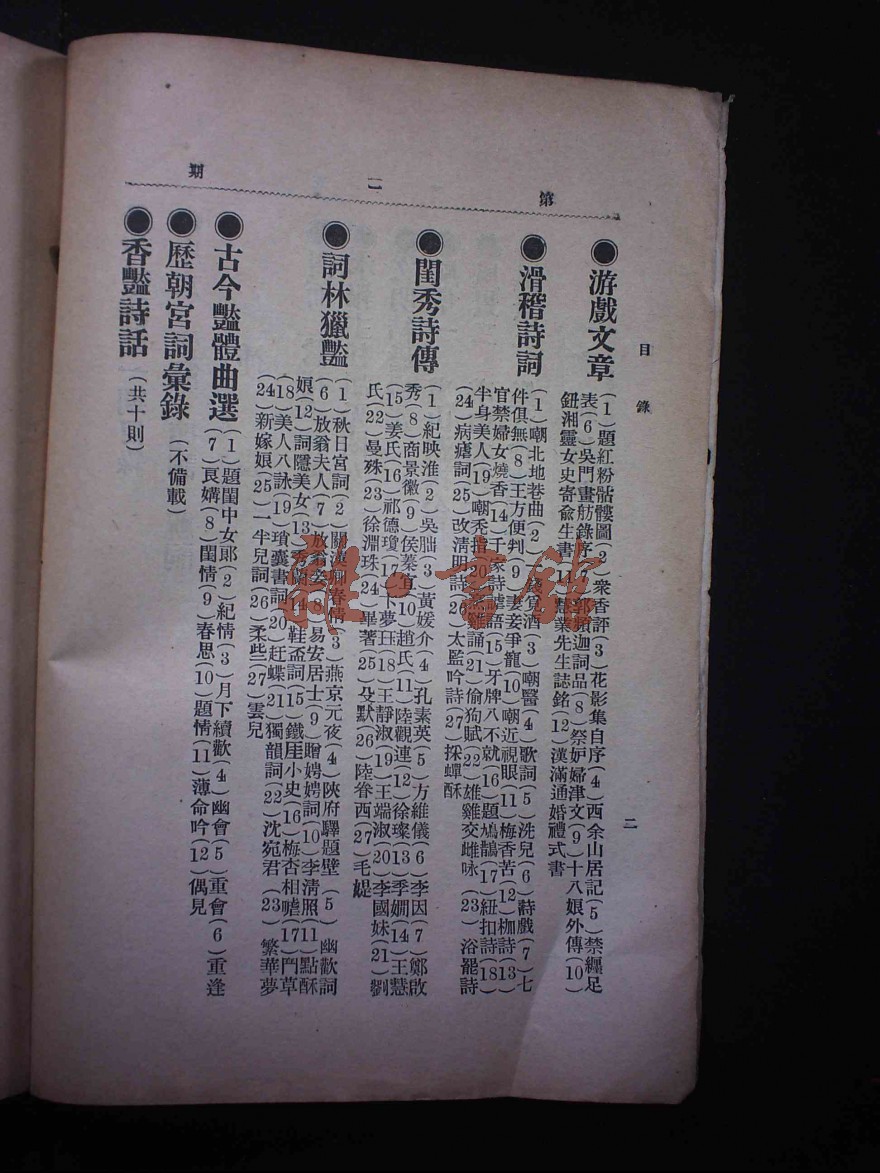 第二期
目錄
二
●游戲文章
(1)題紅粉骷髏圖(2)衆香評(3)花影集自序(4)西余山居記(5)禁纏足
表(6)吳門畫舫錄序(7)郭頻迦詞品(8)祭妒婦津文(9)十八娘外傳(10)
鈕湘靈女史寄兪生書(11)業先生誌銘(12)漢滿通婚禮式書
●滑稽詩詞
(1)嘲北地巷曲(2)錢覓酒(3)嘲醫(4)歌詞(5)洗兒(6)詩戲(7)七
件俱無(8)王方便判(9)妻妾爭寵(10)嘲近視眼(11)梅香苦(12)枷詩(13)
官禁婦女燒香(14)千家詩謔語(15)牙牌八不就(16)題鳩鵲(17)紐扣詩(18)
半身美人(19)嘲禿指(20)雞誦(21)偷狗賦(22)雄雞交雌咏(23)浴罷詩
(24)病瘧詞(25)改淸明詩(26)太監吟詩(27)採蟬酥
●閨秀詩傳
(1)紀映淮(2)吳朏(3)黃媛介(4)孔素英(5)方維儀(6)李因(7)鄭啟
秀(8)商景徽(9)侯蓁宜(10)趙氏(11)陸觀連(12)徐璨(13)季嫻(14)王慧
(15)姜氏(16)祁德瓊(17)卞夢玨(18)王靜淑(19)王端淑(20)李國妹(21)劉
氏(22)曼殊(23)徐淵珠(24)畢著(25)殳默(26)陸眷西(27)毛媞
●詞林獵豔
(1)秋日宮詞(2)關漢卿春情(3)燕京元夜(4)陝府驛題壁(5)幽歡詞
(6)放翁夫人(7)放翁妾(8)易安居士(9)贈娉娉詞(10)李淸照(11)點酥
娘(12)詞隱美女(13)秀蘭(14)鞋盃詞(15)鐵厓小史(16)梅杏相嘘(17)鬥草
(18)美人八詠(19)瑣囊書詞(20)赶蝶(21)獨韻詞(22)沈宛君(23)繁華夢
(24)新嫁娘(25)一半兒詞(26)柔些(27)雲兒
●古今豔體曲選
(1)題閨中女郞(2)紀情(3)月下續歡(4)幽會(5)重會(6)重逢
(7)良媾(8)閨情(9)春思(10)題情(11)薄命吟(12)偶見
●歷朝宮詞彙錄(不備載)
●香豔詩話(共十則)